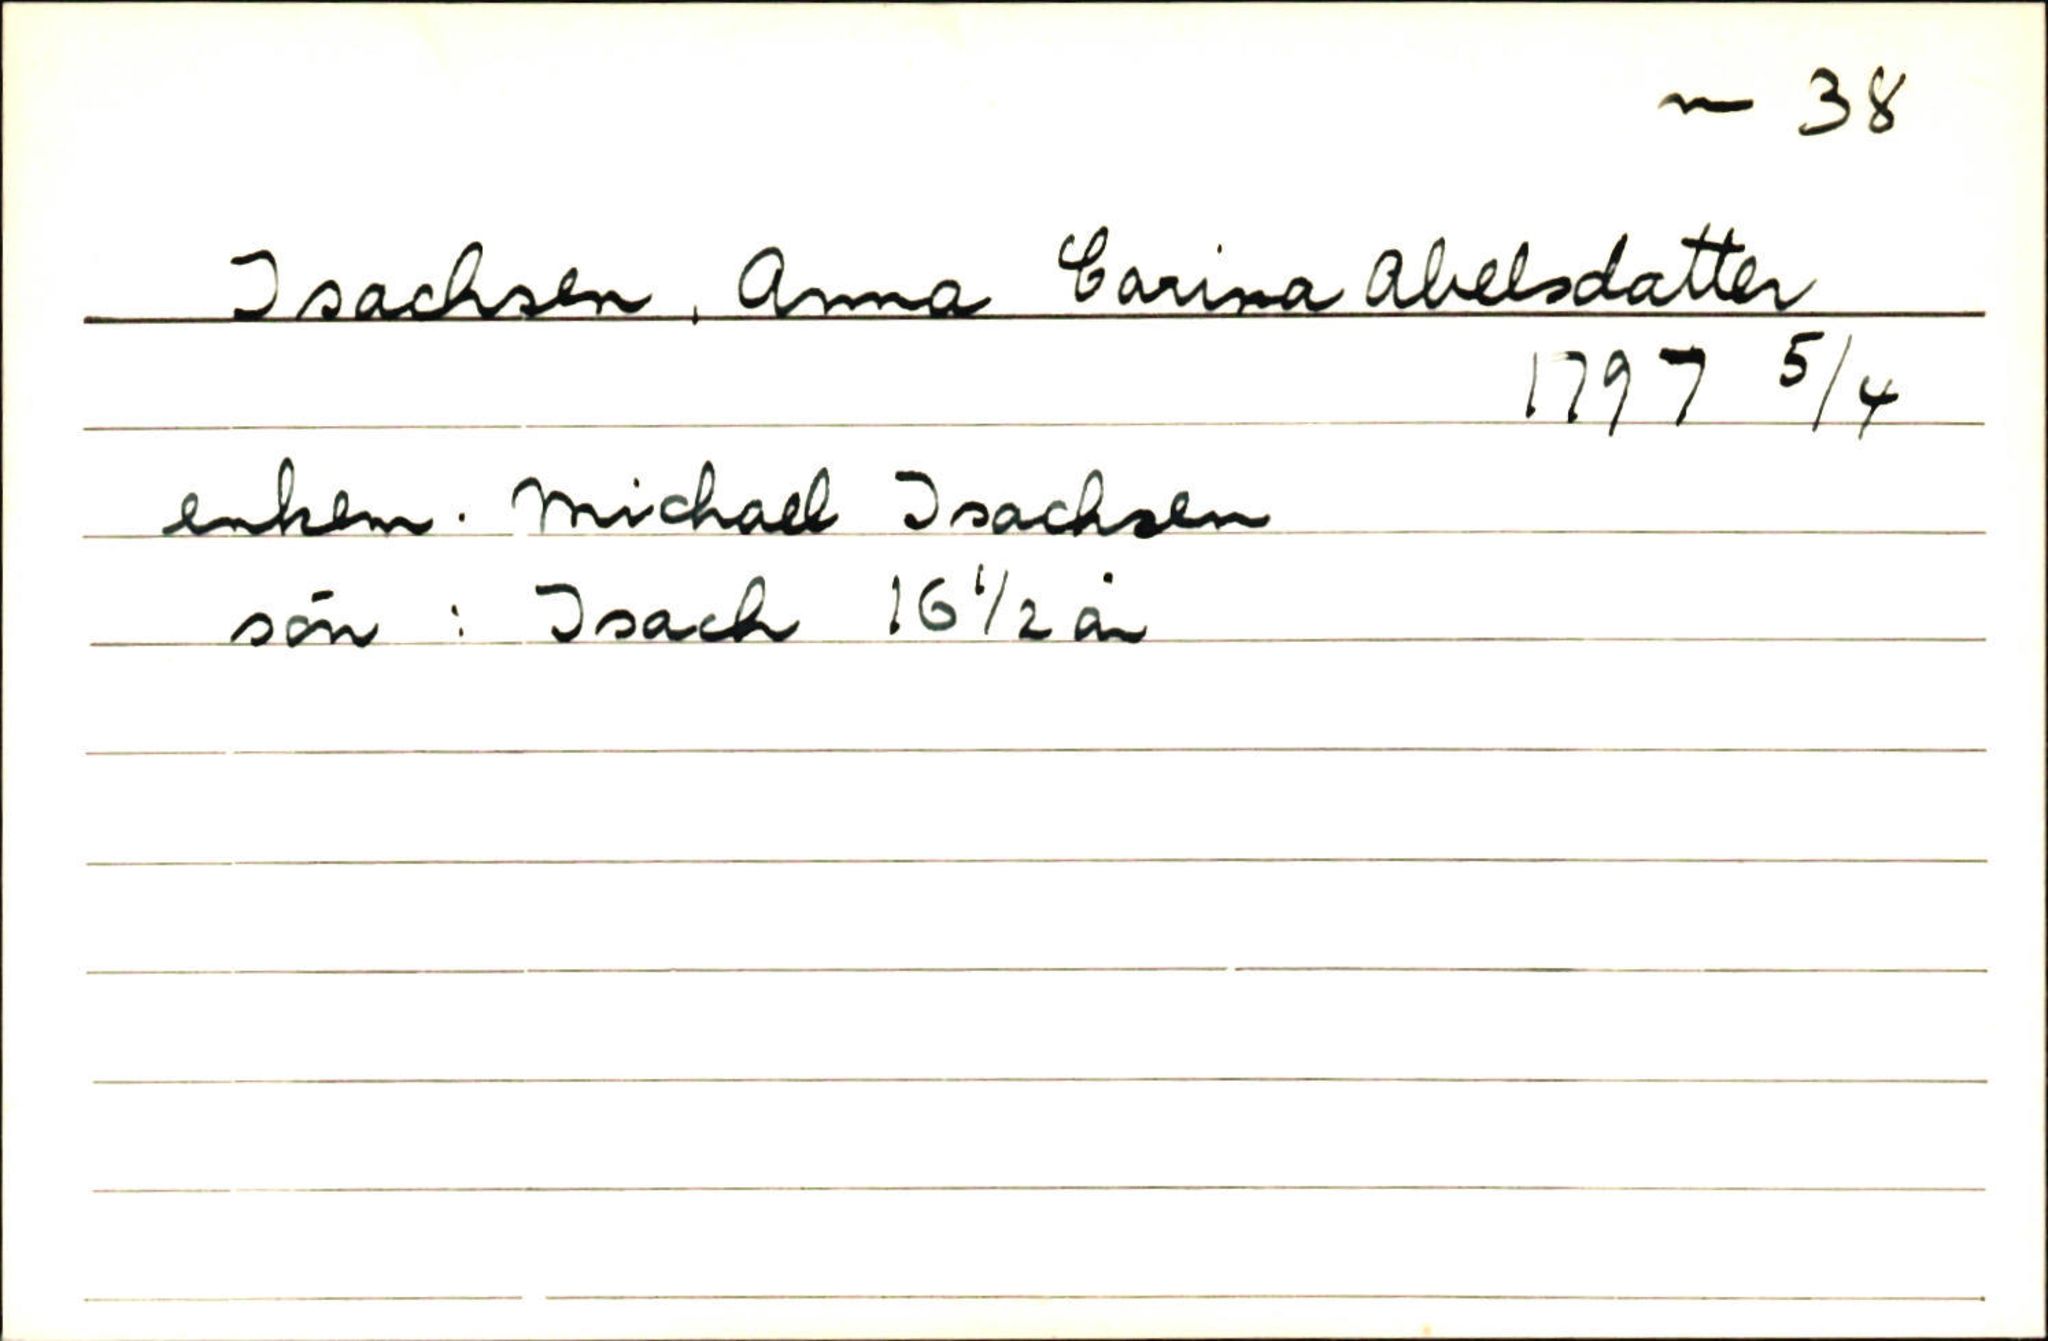 m 38
Isachsen, Anna Carina Abelsdatter
1797 5/4
enkem. Michael Isachsen
sön : Isach 16 1/2 år